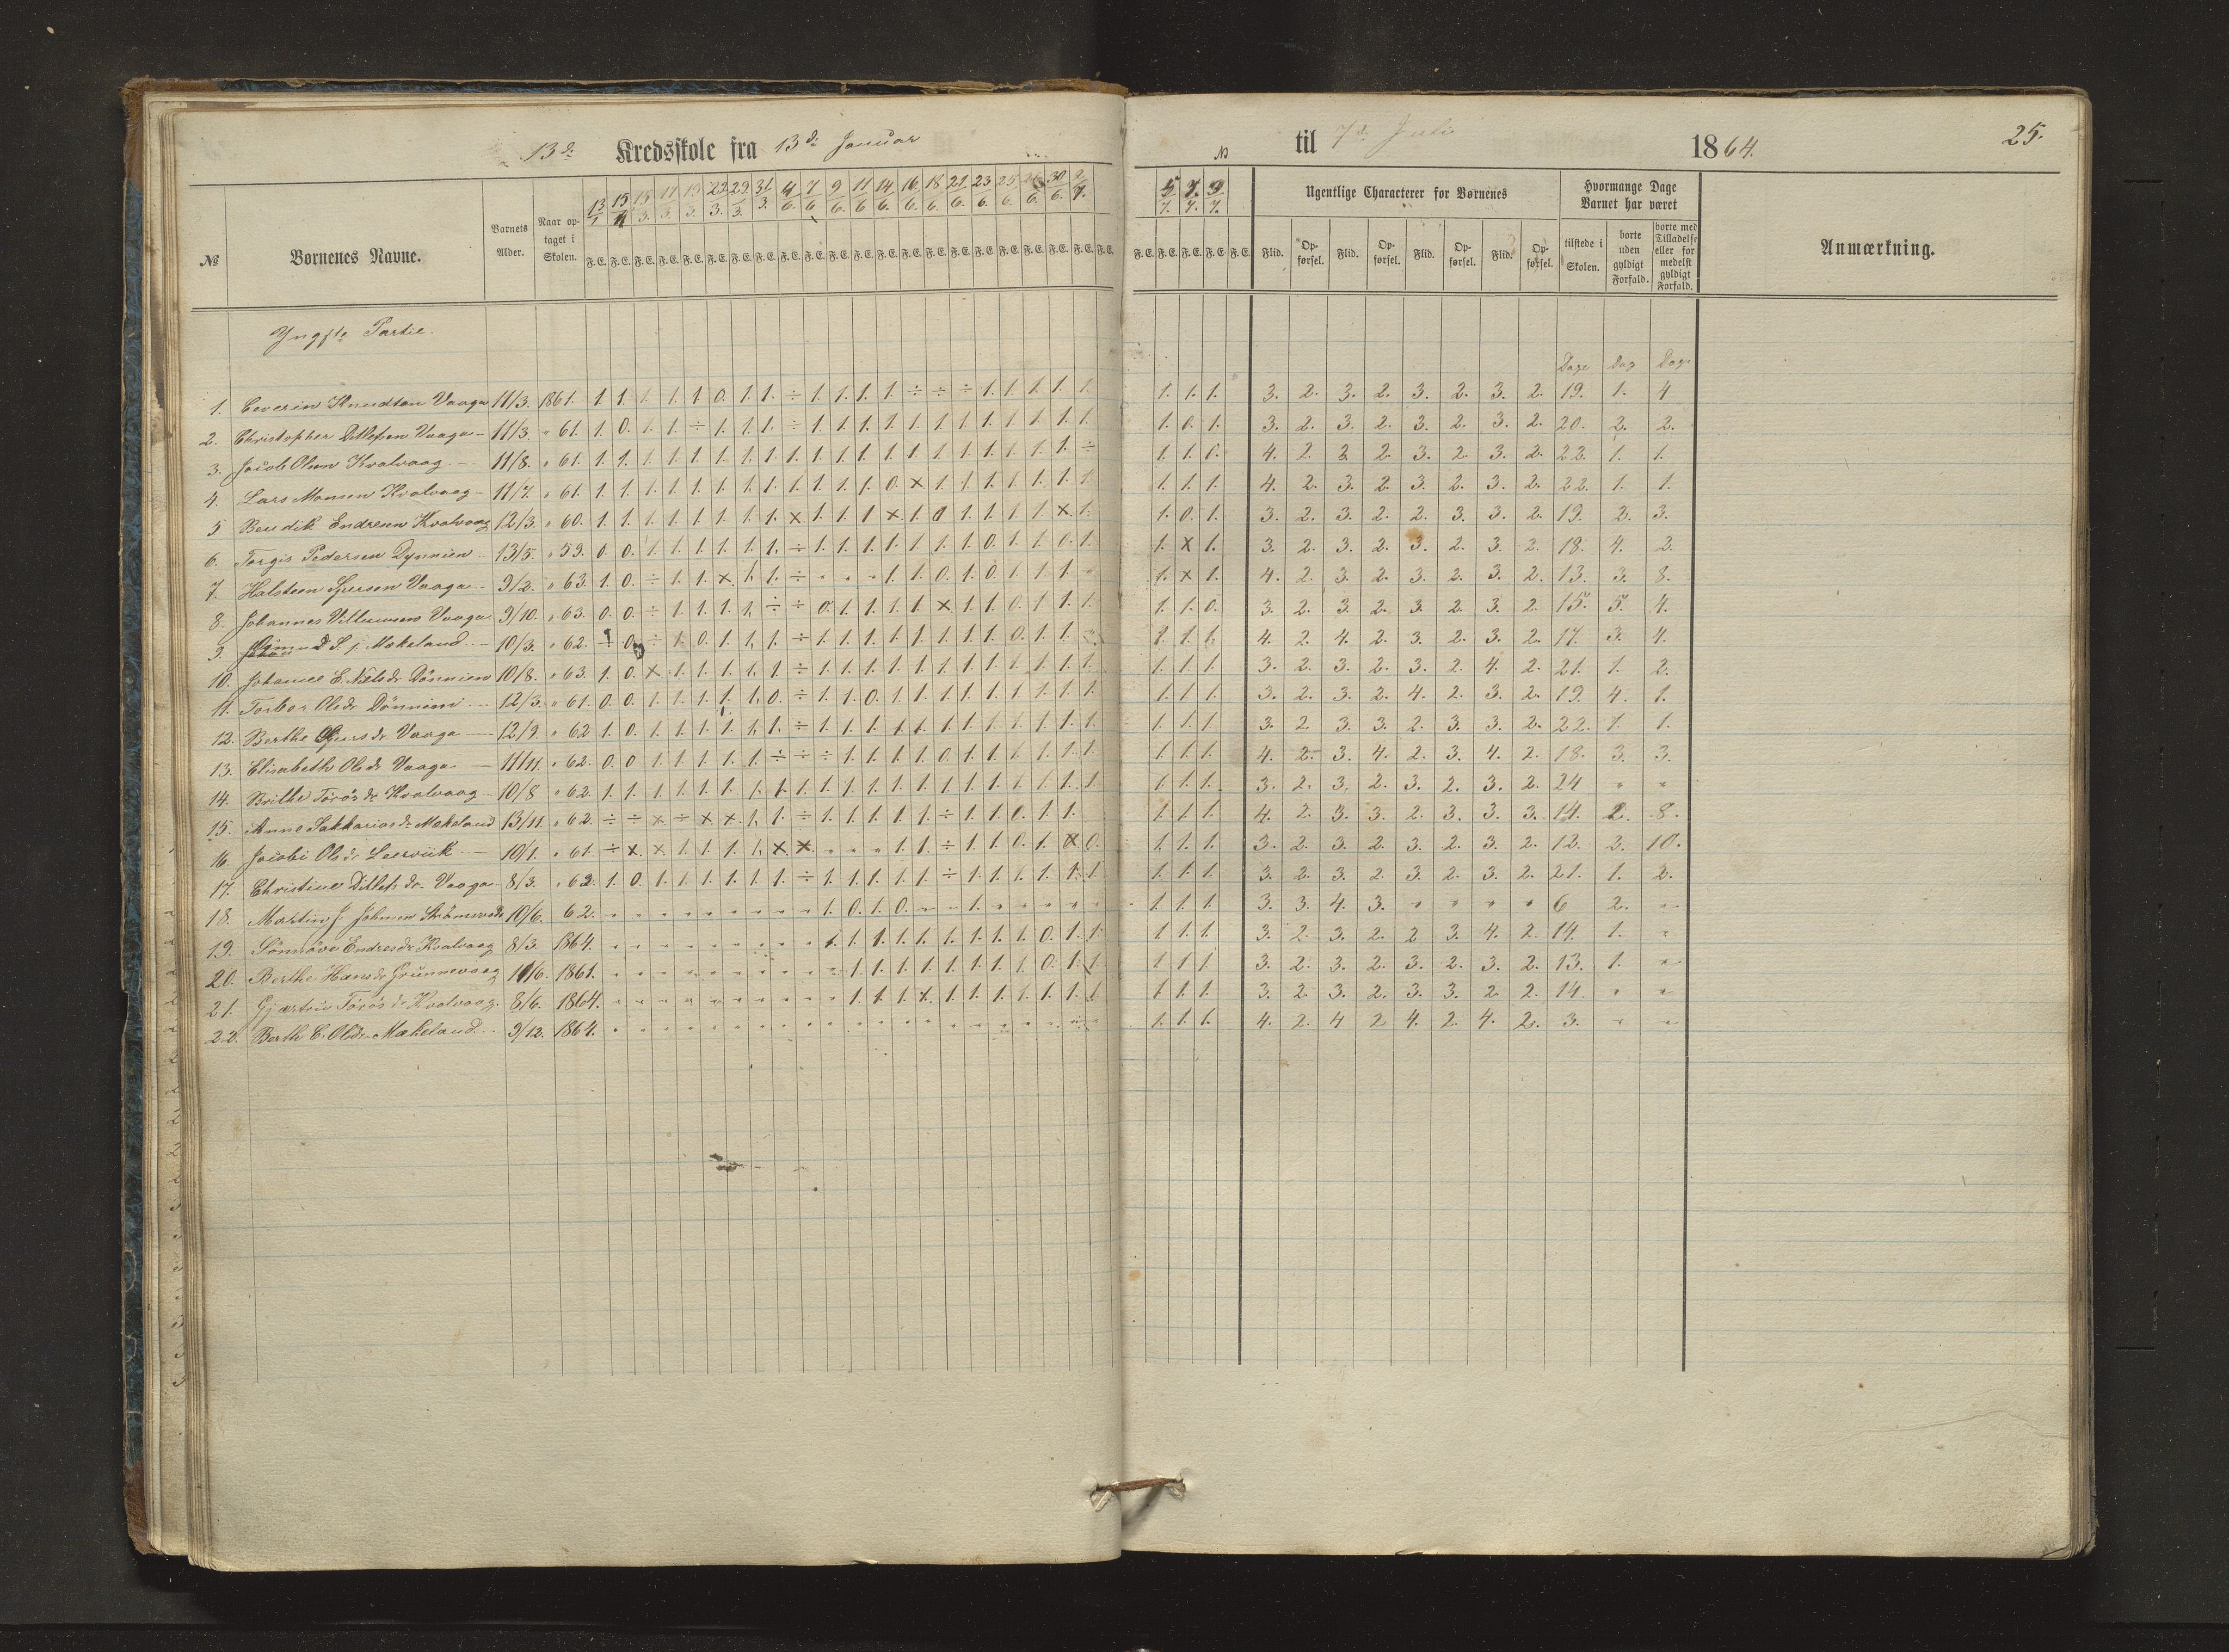 13de Kredsskole fra 13de Januar til 7de Juli 1864. 25.
№ Børnenes Navne. Barnets Alder. Naar optaget i Skolen. 13/1 15/1 15/3. 17/3. 19/3. 22/3. 29/3. 31/3. 4/6. 7/6 9/6. 11/6 14/6. 16/6. 18/6. 21/6. 23/6. 25/6. 30/6. 2/7. 5/7. 7/7. 9/7.
F. E. F. E. F. E. F. E. F. E. F. E. F. E. F. E. F. E. F. E. F. E. F. E. F. E. F. E. F. E. F. E. F. E. F. E. F. E. F. E. F. E. F. E. F. E. F. E. F. E. F. E.
Ugentlige Characterer for Børnenes
Flid. Opførsel. Flid. Opførsel. Flid. Opførsel. Flid. Opførsel.
Hvormange Dage Barnet har været
tilstede i Skolen. borte uden gyldigt Forfald. borte med Tilladelse eller formedelst gyldigt Forfald.
Anmærkning.
Yngste Partie.
Dage Dag Dage
1. Severin Knudtsen Vaage 11/3. 1861. 1. 1. 1. 1. 1 0. 1. 1. ÷ 1. 1. 1. 1. ÷ ÷ ÷ 1. 1. 1. 1. 1. 1. 1. 1. 3. 2. 3. 2. 3. 2. 3. 2. 19. 1. 4
2. Christopher Ditlefsen Vaage 11/3. " 61. 1. 0. 1. 1. ÷ 1. 1. 1. ÷ 1. 1. 1. 1. 1. 1. 1. 1. 1. 1. 1. 1. 1. 0. 1. 3. 2. 3. 2. 3. 2. 3. 2. 20. 2. 2.
3. Jacob Olsen Kvalvaag 11/8. " 61. 1. 1. 1. 1. 1. 1. 1. 1. 1. 1. 1. 1. 1. 1. 1. 1. 1. 1. 1. 1. ÷ 1. 1. 0. 4. 2. 3 2. 3. 2. 3. 2. 22. 1. 1.
4. Lars Monsen Kvalvaag 11/7. " 61. 1. 1. 1. 1. 1. 1. 1. 1. 1. 1. 1. 1. 0. × 1. 1. 1. 1. 1. 1. 1. 1. 1. 1. 4. 2. 3. 2. 3. 2. 3. 2. 22. 1. 1.
5 Bendik Endresen Kvalvaag 12/3. " 60. 1. 1. 1. 1. 1. 1. 1. 1. × 1. 1. 1 × 1. 0 1. 1. 1. 1. × 1. 1. 0. 1. 3. 2. 3. 2. 2. 3. 3. 2. 19. 2. 3.
6. Torgis Pedersen Dynnien 13/5. " 59. 0. 0. 1. 1. 1. 1. 1. 1. ÷ 1. 1. 1. 1. 1. 1. 1. 0. 1. 1. 0. 1. 1. × 1. 3. 2. 3. 2. 3. 2. 3. 2. 18. 4. 2.
7. Halsteen Vaage 9/2. " 63. 1. 0. ÷ 1. 1. × 1. 1. ÷ " " " 1. 1. 0. 1. 0. 1. 1. 1. " 1. × 1. 4. 2. 3. 2. 3. 2. 3. 2. 13. 3. 8.
8. Johannes Villumsen Vaage 9/10. " 63. 0. 0. ÷ 1. 1. 1. 1. ÷ ÷ 0. 1. 1. 1. 1. × 1. 1. 0. 1. 1. 1. 1. 1. 0. 3. 2. 3. 2. 3. 2. 3. 2. 15. 5. 4.
9. Mækeland 10/3. " 62. ÷ 0. ÷ 1. 0. 1. 1. 1. ÷ 1. 1. 1. 1. 1. 1. 1. 1. 0. 1. 1. 1. 1. 1. 4. 2. 4. 2. 3. 2. 3. 2. 17. 3. 4.
10. Johanne E. Nilsdr Dönnien 10/8. " 63. 1. 0. × 1. 1. 1. 1. 1. ÷ 1. 1. 1. 1. 1. 1. 1. 1. 1. 1. 1. 1. 1. 1. 1 3. 2. 3. 2. 3. 2. 4. 2. 21. 1. 2.
11. Torbor Olsdr Dönnieni 12/3. " 61. 0. 0. 1. 1. 1. 1. 1. 0. ÷ 1. 1. 0. 1. 1. 1. 1. 1. 1. 1. 1. 1. 1. 1. 1 3. 2. 3. 2. 4. 2. 3. 2. 19. 4. 1.
12. Berthe Vaage 12/9. " 62 1. 0. 1. 1. 1. 1. 1. 1. ÷ 1. 1. 1. 1. 1. 1. 1. 1. 1. 1. 1. 1. 1. 1. 1 3. 2 3. 3. 2. 3. 3. 2. 22. 1. 1.
13. Elisabeth Olsdr Vaage 11/11. " 62. 0. 0 1. 1. 1. 1. 1. ÷ ÷ ÷ 1. 1. 1. 1. 0. 1. 1. 1. 1. 1. 1. 1. 1. 1. 4. 2. 3. 4. 2. 3. 4. 2. 18. 3. 3.
14. Brithe Törösdr Kvalvaag 10/8 " 62. 1. 1. 1. 1. 1. 1. 1. 1. 1. 1. 1. 1. 1. 1. 1. 1. 1. 1. 1. 1. 1. 1. 1. 1. 3. 2. 3. 2. 3. 2. 3. 2. 24 " "
15. Anne Sakkariasdr Mækeland 13/11. " 62. ÷ ÷ × ÷ × × 1. 1. ÷ 1. 1. 1. 1. 1. ÷ 1. 1. 0. 1. 1. 1. 1. 1 4. 2. 3. 3. 2. 3. 3. 3. 14. 2. 8.
16. Jacobi Olsdr Leervik 10/1. " 61. ÷ × × 1. 1. 1. 1. × × " " " 1. 1. ÷ 1. 1. 0. 1. × 0. 1. 1. 1. 3. 2. 3. 2. 3. 2. 3. 2. 12. 2. 10.
17. Christine Ditlefsdr. Vaage 8/3. " 62. 1. 0. 1. 1. 1. 1. 1. 1. ÷ 1. 1. 1. 1. 1. ÷ 1. 1. 1. 1. 1. 1. 1. 1. 1 3. 2. 3. 2. 3. 2. 3. 2. 21. 1. 2.
18. Martin J. Johnsen 10/6. 62. " " " " " " " " " 1. 0. 1. 0. " " 1. " " " " " 1. 1. 1. 3. 3. 4. 3. " " " " 6 2. "
19. Sönnöve Endresdr Kvalvaag 8/3. 1864. " " " " " " " " " 1. 1. 1. 1. 1. 1. 1. 1. 1. 0. 1. 1. 1. 1. 1. 3. 2. 3. 2. 2 3. 4. 2. 14. 1. "
20. Berthe Hansdr Grunnevaag 11/6. 1861. " " " " " " " " " " 1. 1. 1. 1. 1. 1. 1. 1. 0. 1. 1. 1. 1. 1. 3. 2. 3. 2. 3. 2. 3. 2. 13. 1. "
21. Gjærtru Törösdr Kvalvaag. 8/6. 1864. " " " " " " " " " " 1. 1. 1. 1. 1. 1. 1. 1. 1. 1. 1. 1. 1. 1. 3. 2. 3. 2. 3. 3. 2. 2. 14. " "
22. Berthe E. Olsdr Mækeland 9/12. 1864. " " " " " " " " " " " " " " " " " " " " " 1. 1. 1. 4. 2. 4 2. 4. 2. 4. 2. 3. " "